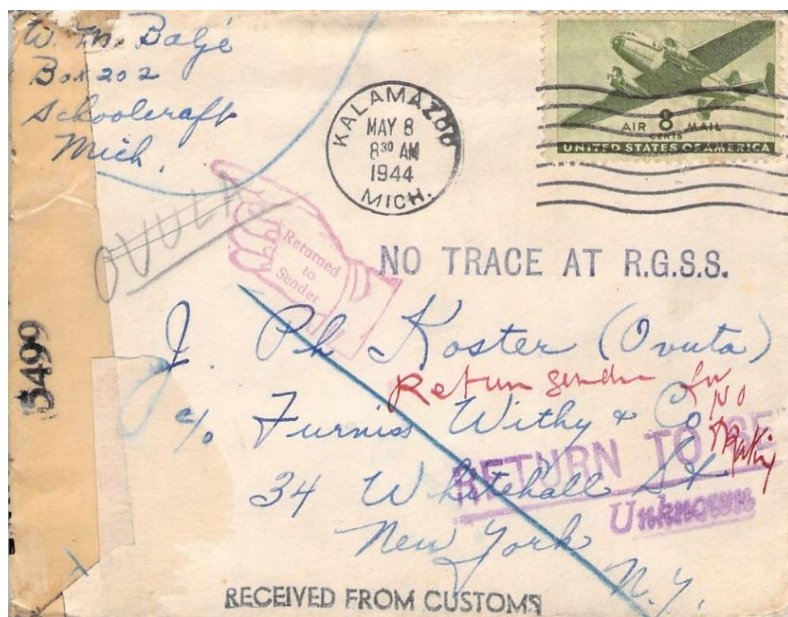 W. M. Balje
Box 202
Schoolcraft
Mich.
KALAMAZOO
MAY 8
8 30 AM
1944
MICH.
AIR 8 MAIL
CENTS
UNITED STATES OF AMERICA
OVULA
Returned
to
Sender
NO TRACE AT R.G.S.S.
J. Ph Koster (Ovuta)
Return sender for
NO
c/o Furniss Withy & Co
RETURN TO BE
34 Whitehall St
Unknown
New York
N.Y.
5499
RECEIVED FROM CUSTOMS